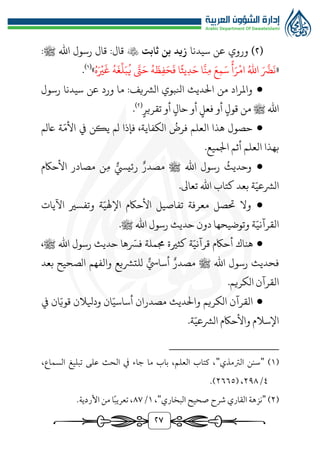 إدارة الشؤون العربية
Arabic Department Of Dawateislami
(٢) وروي عن سيدنا زيد بن ثابت ﵁ قال: قال رسول الله ﷺ:
«نَضَّرَ اللهُ امْرَأً سَمِعَ مِنَّا حَدِيْثًا فَحَفِظَهُ حَتَّى يُبَلِّغَهُ غَيْرَهُ»(١).
● والمراد من الحديث النبوي الشريف: ما ورد عن سيدنا رسول
الله ﷺ من قولٍ أو فعلٍ أو حالٍ أو تقريرٍ(٢).
● حصول هذا العلم فرضُ الكفاية، فإذا لم يكن في الأمّة عالم
بهذا العلم أثم الجميع.
● وحديثُ رسول الله ﷺ مصدرٌ رئيسيٌّ مِن مصادر الأحكام
الشرعيّة بعد كتاب الله تعالى.
● ولا تحصل معرفة تفاصيل الأحكام الإلهيّة وتفسير الآيات
القرآنيّة وتوضيحها دون حديث رسول الله ﷺ.
● هناك أحكام قرآنيّة كثيرة مجملة فسّرها حديث رسول الله ﷺ،
فحديث رسول الله ﷺ مصدرٌ أساسيٌّ للتشريع والفهم الصحيح بعد
القرآن الكريم.
● القرآن الكريم والحديث مصدران أساسيّان ودليلان قويّان في
الإسلام والأحكام الشرعيّة.
(١) "سنن الترمذي"، كتاب العلم، باب ما جاء في الحث على تبليغ السماع،
٤/٢٩٨، (٢٦٦٥).
(٢) "نزهة القاري شرح صحيح البخاري"، ١/٨٧، تعريبًا من الأردية.
٢٧